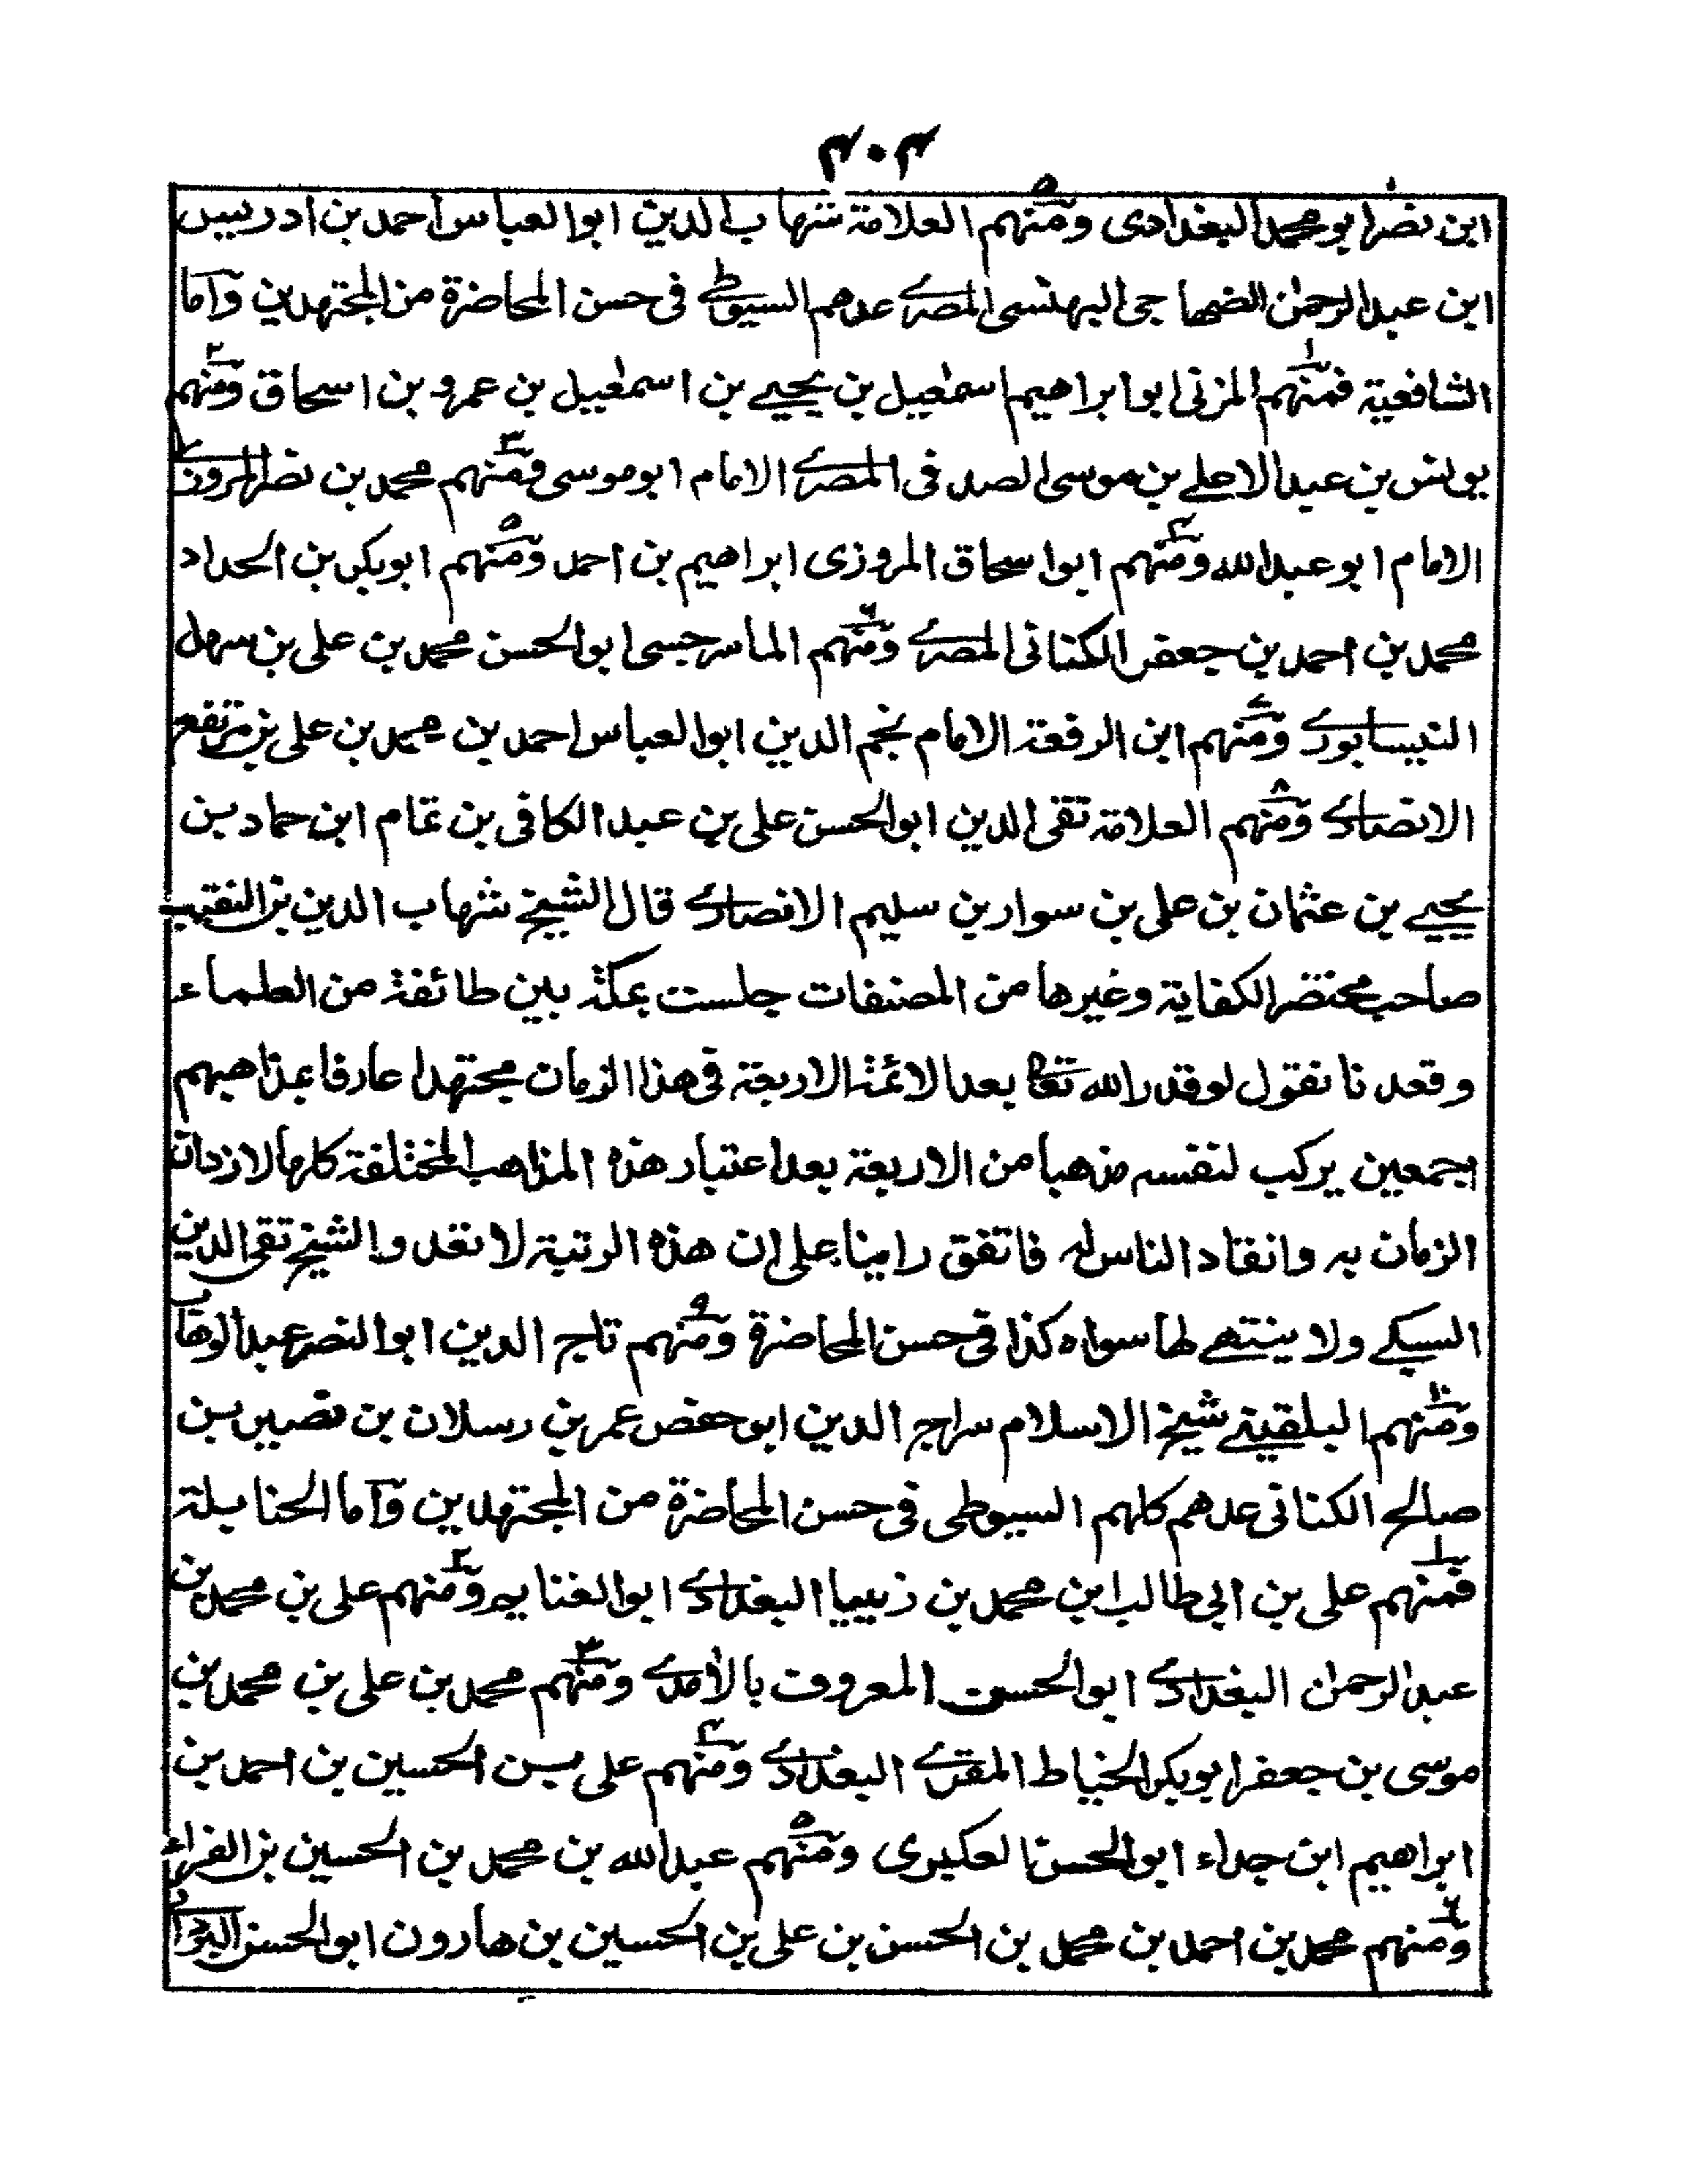 ۴۰۴
ابن نصر ابو محمد البغدادی ومنهم العلامة شهاب الدین ابو العباس احمد بن ادریس
ابن عبد الرحمن الصنهاجی البهنسی المصری عدهم السیوطی فی حسن المحاضرة من المجتهدین واما
الشافعیة فمنهم المزنی ابو ابراهیم اسمعیل بن یحیی بن اسمعیل بن عمرو بن اسحاق ومنهم
یونس بن عبد الاعلی بن موسی الصدفی المصری الامام ابو موسی ومنهم محمد بن نصر المروزی
الامام ابو عبد الله ومنهم ابو اسحاق المروزی ابراهیم بن احمد ومنهم ابوبکر بن الحداد
محمد بن احمد بن جعفر الکنانی المصری ومنهم الماسرجسی ابو الحسن محمد بن علی بن سهل
النیسابوری ومنهم ابن الرفعة الامام نجم الدین ابو العباس احمد بن محمد بن علی بن مرتفع
الانصاری ومنهم العلامة تقی الدین ابو الحسن علی بن عبد الکافی بن تمام ابن حماد بن
یحیی بن عثمان بن علی بن سوار بن سلیم الانصاری قال الشیخ شهاب الدین بن النقیب
صاحب مختصر الکفایة وغیرها من المصنفات جلست بمکة بین طائفة من العلماء
وقعدنا نقول لو قدر الله تعالی بعد الائمة الاربعة فی هذا الزمان مجتهدا عارفا بمذاهبهم
اجمعین یرکب لنفسه مذهبا من الاربعة بعد اعتبار هذه المذاهب المختلفة کلها لازدان
الزمان به وانقاد الناس له فاتفق راینا علی ان هذه الرتبة لا تعدو الشیخ تقی الدین
السبکی ولا ینتهی لها سواه کذا فی حسن المحاضرة ومنهم تاج الدین ابو النصر عبد الوهاب
ومنهم البلقینی شیخ الاسلام سراج الدین ابو حفص عمر بن رسلان بن نصیر بن
صالح الکنانی عدهم کلهم السیوطی فی حسن المحاضرة من المجتهدین واما الحنابلة
فمنهم علی بن ابی طالب ابن محمد بن زبیبا البغدادی ابو الغنایم ومنهم علی بن محمد بن
عبد الرحمن البغدادی ابو الحسن المعروف بالآمدی ومنهم محمد بن علی بن محمد بن
موسی بن جعفر ابوبکر الخیاط المقری البغدادی ومنهم علی بن الحسین بن احمد بن
ابراهیم ابن جداء ابو الحسن العکبری ومنهم عبد الله بن محمد بن الحسین بن الفراء
ومنهم محمد بن احمد بن محمد بن الحسن بن علی بن الحسین بن هارون ابو الحسن